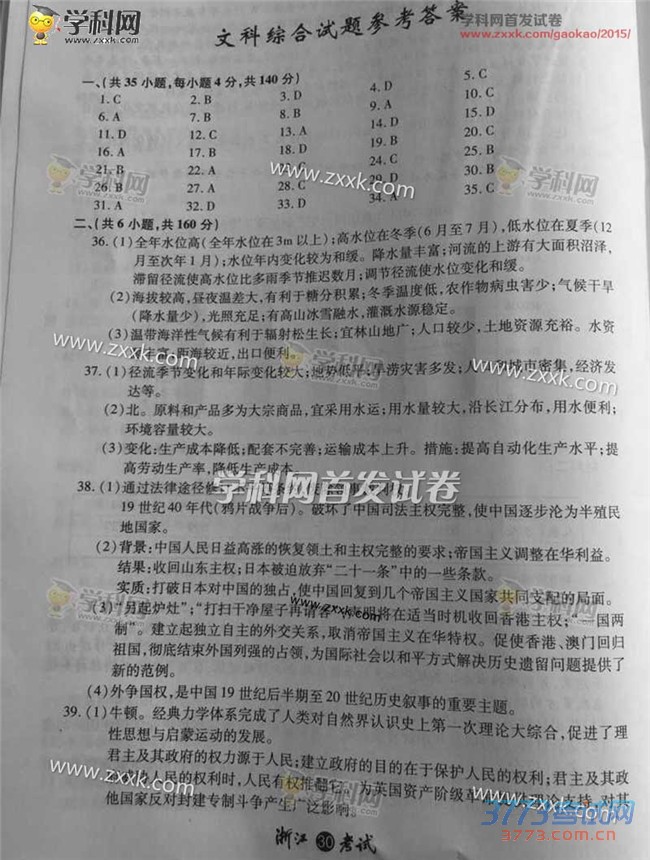 学科网
www.zxxk.com
学科网首发试卷
www.zxxk.com/gaokao/2015/
文科综合试题参考答案
一、(共35小题,每小题4分,共140分)
1.C 2.B 3.D 4.D 5.C
6.A 7.B 8.B 9.A 10.C
11.D 12.C 13.A 14.D 15.D
16.A 17.B 18.D 19.B 20.C
21.B 22.A 24.C 25.B
26.B 27.A 28.C 29.D 30.B
31.A 32.D 33.D 34.A 35.C
学科网 www.zxxk.com 学科网
二、(共6小题,共160分)
36.(1)全年水位高(全年水位在3m以上);高水位在冬季(6月至7月),低水位在夏季(12
月至次年1月);水位年内变化较为和缓。降水量丰富;河流的上游有大面积沼泽,
滞留径流使高水位比多雨季节推迟数月;调节径流使水位变化和缓。
(2)海拔较高,昼夜温差大,有利于糖分积累;冬季温度低,农作物病虫害少;气候干旱
(降水量少),光照充足;有高山冰雪融水,灌溉水源稳定。
(3)温带海洋性气候有利于辐射松生长;宜林山地广;人口较少,土地资源充裕。水资
距海较近,出口便利。
www.zxxk.com 学科网 www.zxxk.com
37.(1)径流季节变化和年际变化较大;地势低平,旱涝灾害多发;人口和城市密集,经济发
达等。
(2)北。原料和产品多为大宗商品,宜采用水运;用水量较大,沿长江分布,用水便利;
环境容量较大。
(3)变化:生产成本降低;配套不完善;运输成本上升。措施:提高自动化生产水平;提
高劳动生产率,降低生产成本。
学科网首发试卷
38.(1)通过法律途径
19世纪40年代(鸦片战争后)。破坏了中国司法主权完整,使中国逐步沦为半殖民
地国家。
(2)背景:中国人民日益高涨的恢复领土和主权完整的要求;帝国主义调整在华利益。
结果:收回山东主权;日本被迫放弃“二十一条”中的一些条款。
实质:打破日本对中国的独占,使中国回复到几个帝国主义国家共同支配的局面。
学科网 www.zxxk.com 学科网
(3)“另起炉灶”;“打扫干净屋子再请客”;声明将在适当时机收回香港主权;“一国两
制”。建立起独立自主的外交关系,取消帝国主义在华特权。促使香港、澳门回归
祖国,彻底结束外国列强的占领,为国际社会以和平方式解决历史遗留问题提供了
新的范例。
(4)外争国权,是中国19世纪后半期至20世纪历史叙事的重要主题。
39.(1)牛顿。经典力学体系完成了人类对自然界认识史上第一次理论大综合,促进了理
性思想与启蒙运动的发展。
君主及其政府的权力源于人民;建立政府的目的在于保护人民的权利;君主及其政
人民的权利时,人民有权推翻它。为英国资产阶级革命提供理论支持,对其
他国家反对封建专制斗争产生广泛影响。
www.zxxk.com 学科网 www.zxxk.com
浙江 30 考试
3773考试网
3773.com.cn